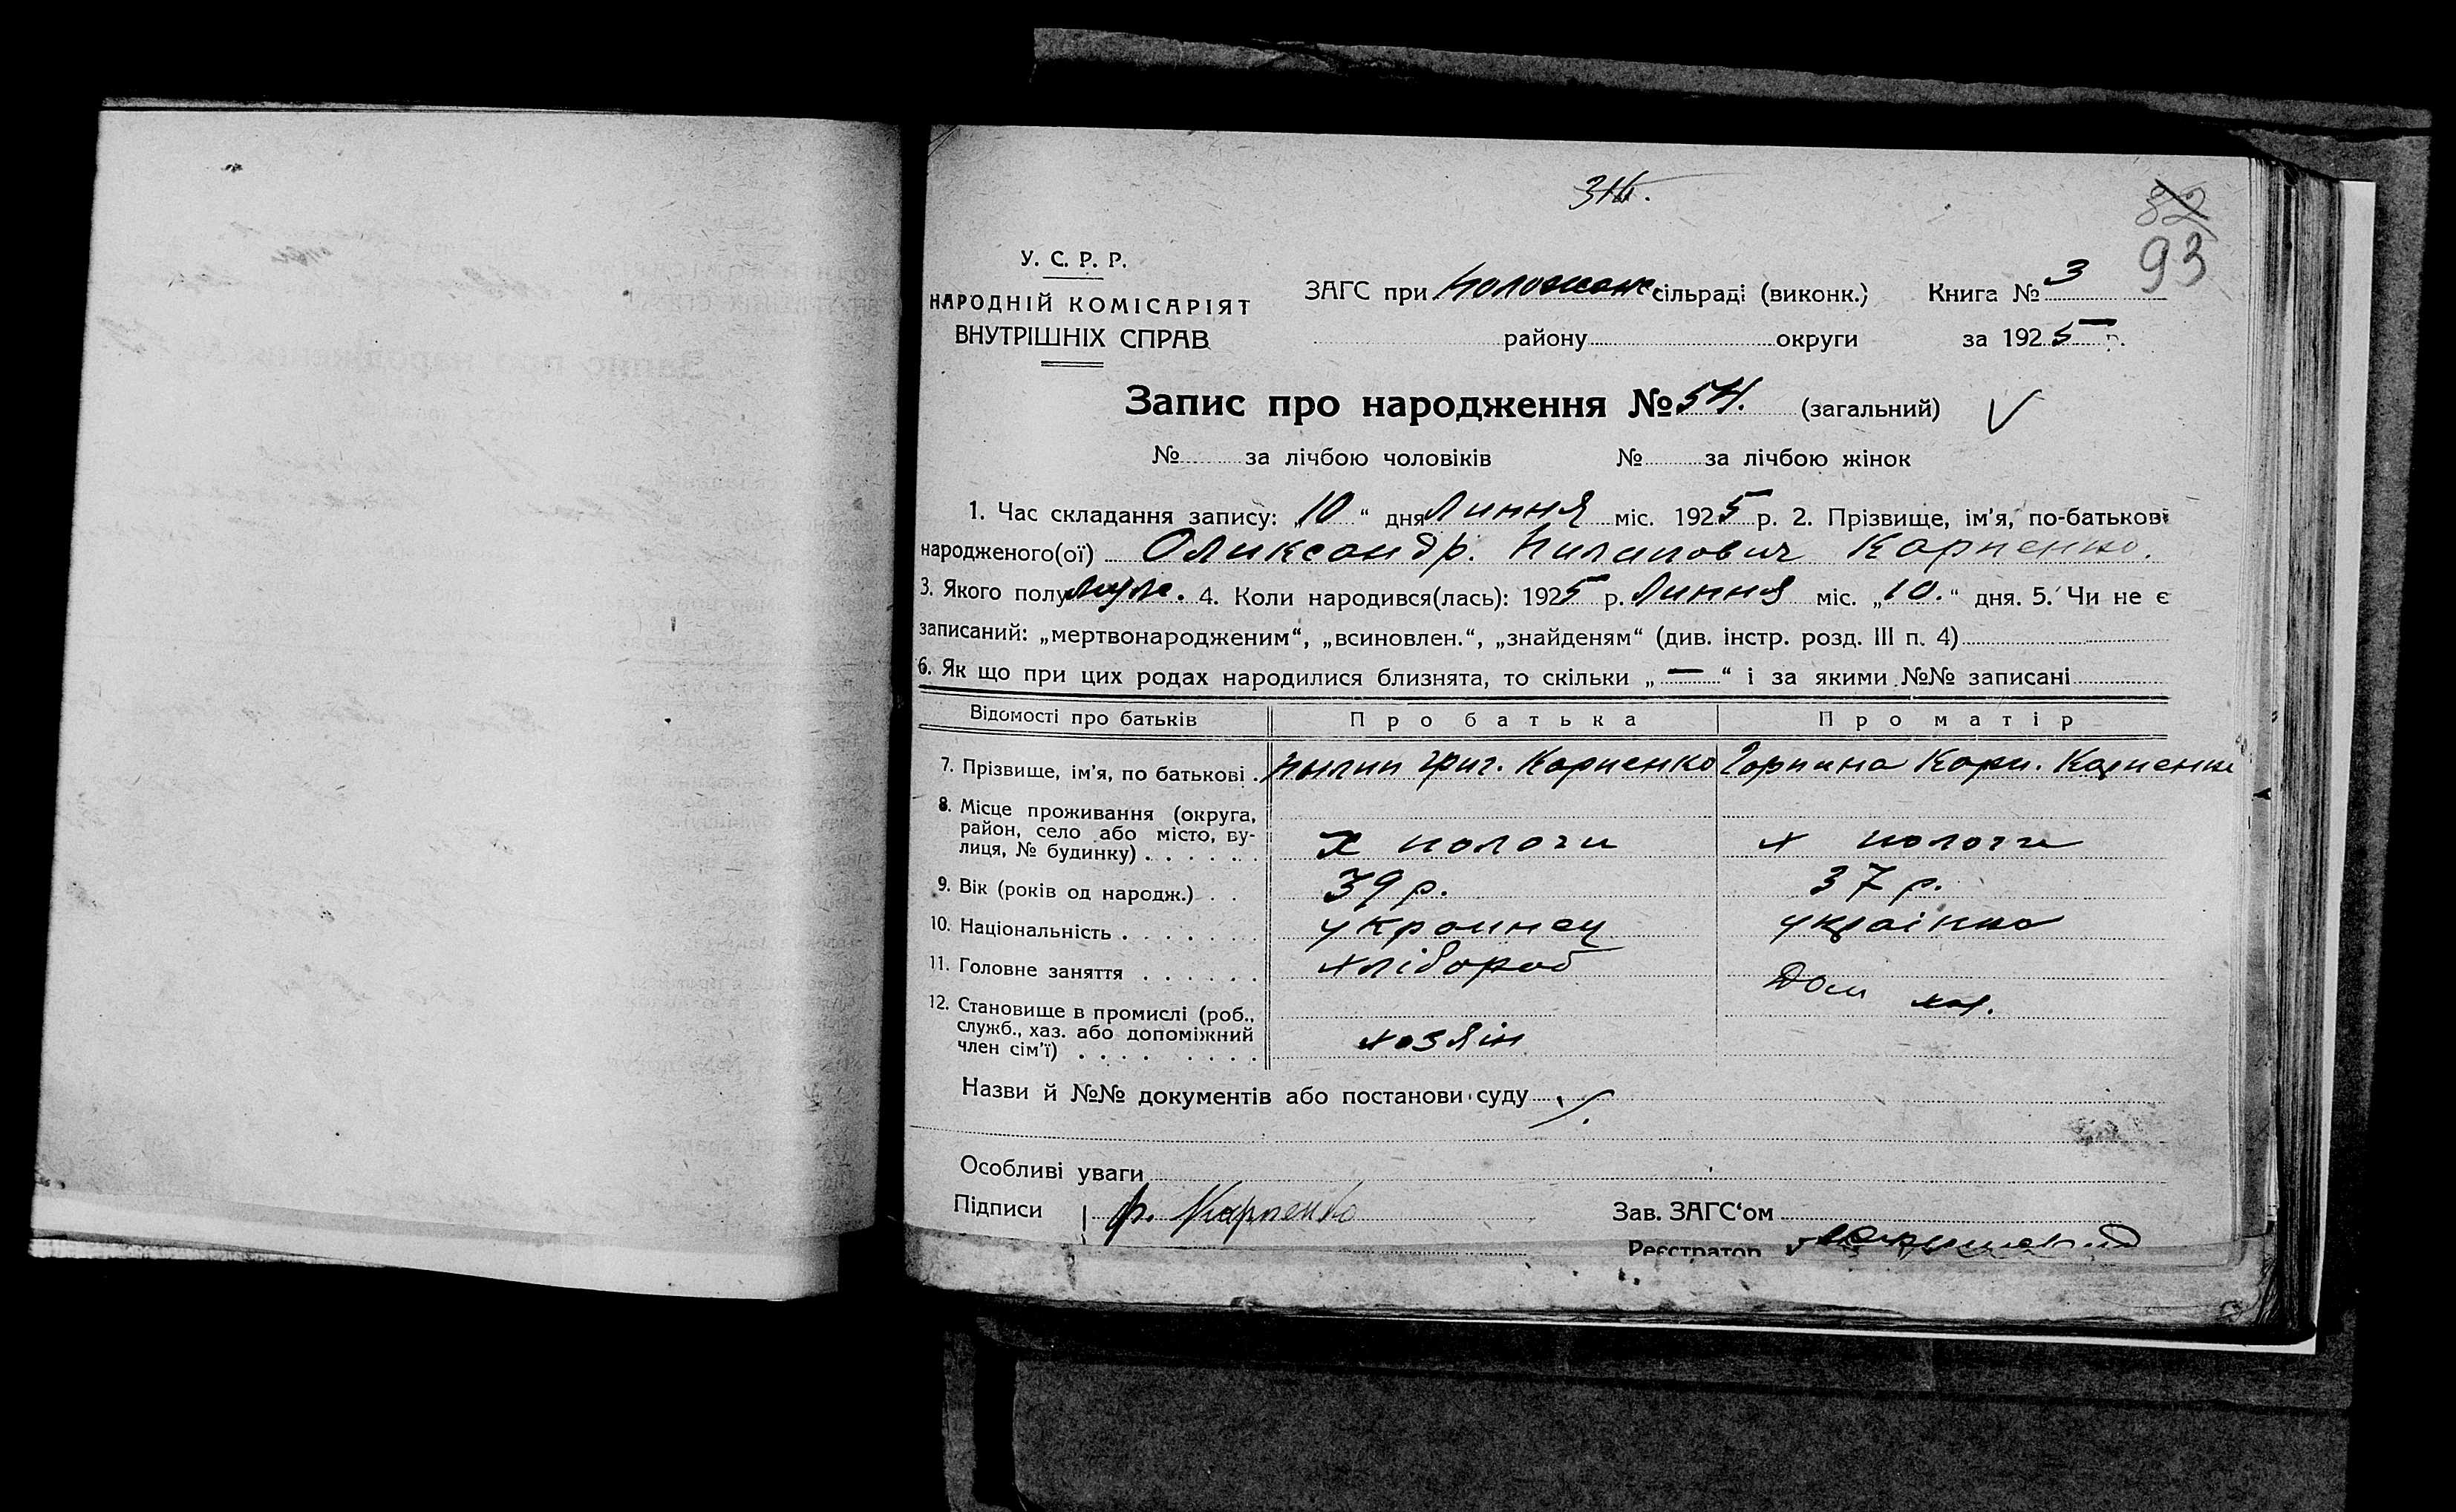 82
93
У. С. Р. Р.
НАРОДНІЙ КОМІСАРІЯТ
ВНУТРІШНІХ СПРАВ
ЗАГС при Положанс сільраді (виконк.) Книга № 3
району округи за 1925 р.
Запис про народження № 54. (загальний)
№ за лічбою чоловіків № за лічбою жінок
1. Час складання запису: „10“ дня Липня міс. 1925 р. 2. Прізвище, ім'я, по-батькові
народженого(ої) Олександр. Пилипович Карпенко.
3. Якого полу муж. 4. Коли народився(лась): 1925 р. Липня міс. „10.“ дня. 5. Чи не є
записаний: „мертвонародженим“, „всиновлен.“, „знайденям“ (див. інстр. розд. III п. 4)
6. Як що при цих родах народилися близнята, то скільки „—“ і за якими №№ записані
Відомості про батьків Про батька Про матір
7. Прізвище, ім'я, по батькові . Пылип Григ. Карпенко Горпина Карп. Карпенко
8. Місце проживання (округа,
район, село або місто, ву-
лиця, № будинку) . . . . . . х пологи х пологи
9. Вік (років од народж.) . . 39 р. 37 р.
10. Національність . . . . . . . украинец українка
11. Головне заняття . . . . . . хлібороб Дом хаз.
12. Становище в промислі (роб.,
служб., хаз. або допоміжний
член сім'ї) . . . . . . . . хозяін
Назви й №№ документів або постанови суду
Особливі уваги
Підписи Ф. Карпенко Зав. ЗАГС'ом
Реєстратор